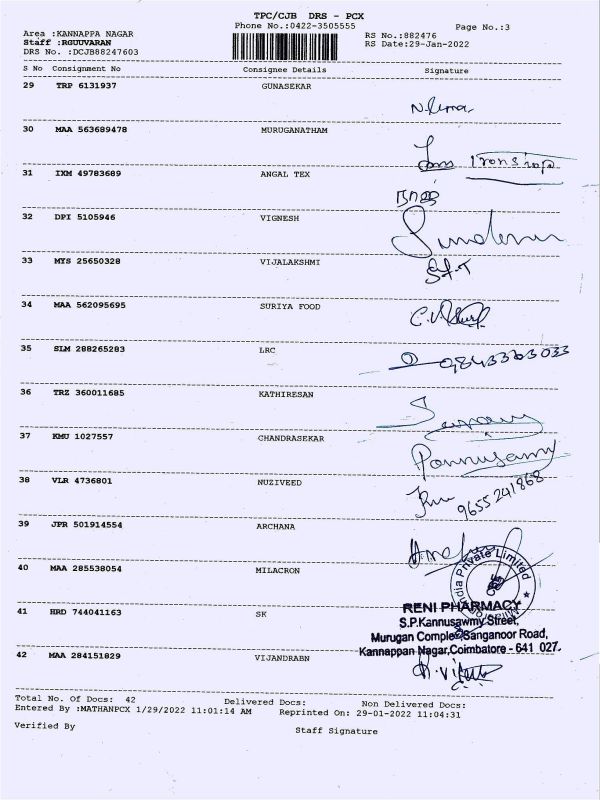 TPC/CJB DRS - PCX
Phone No.:0422-3505555
Page No.:3
Area :KANNAPPA NAGAR
RS No.:882476
Staff :RGUUVARAN
RS Date:29-Jan-2022
DRS No. :DCJB88247603
S No Consignment No Consignee Details Signature
29 TRP 6131937 GUNASEKAR
30 MAA 563689478 MURUGANATHAM
31 IXM 49783689 ANGAL TEX
32 DPI 5105946 VIGNESH
33 MYS 25650328 VIJALAKSHMI
34 MAA 562095695 SURIYA FOOD
35 SLM 288265283 LRC
36 TRZ 360011685 KATHIRESAN
37 KMU 1027557 CHANDRASEKAR
Ponnusamy
38 VLR 4736801 NUZIVEED
9655241868
39 JPR 501914554 ARCHANA
40 MAA 285538054 MILACRON
India Private Limited
41 HRD 744041163 SK
RENI PHARMACY
S.P.Kannusawmy Street,
Murugan Complex Sanganoor Road,
Kannappan Nagar,Coimbatore - 641 027.
42 MAA 284151829 VIJANDRABN
Total No. Of Docs: 42 Delivered Docs: Non Delivered Docs:
Entered By :MATHANPCX 1/29/2022 11:01:14 AM Reprinted On: 29-01-2022 11:04:31
Verified By Staff Signature